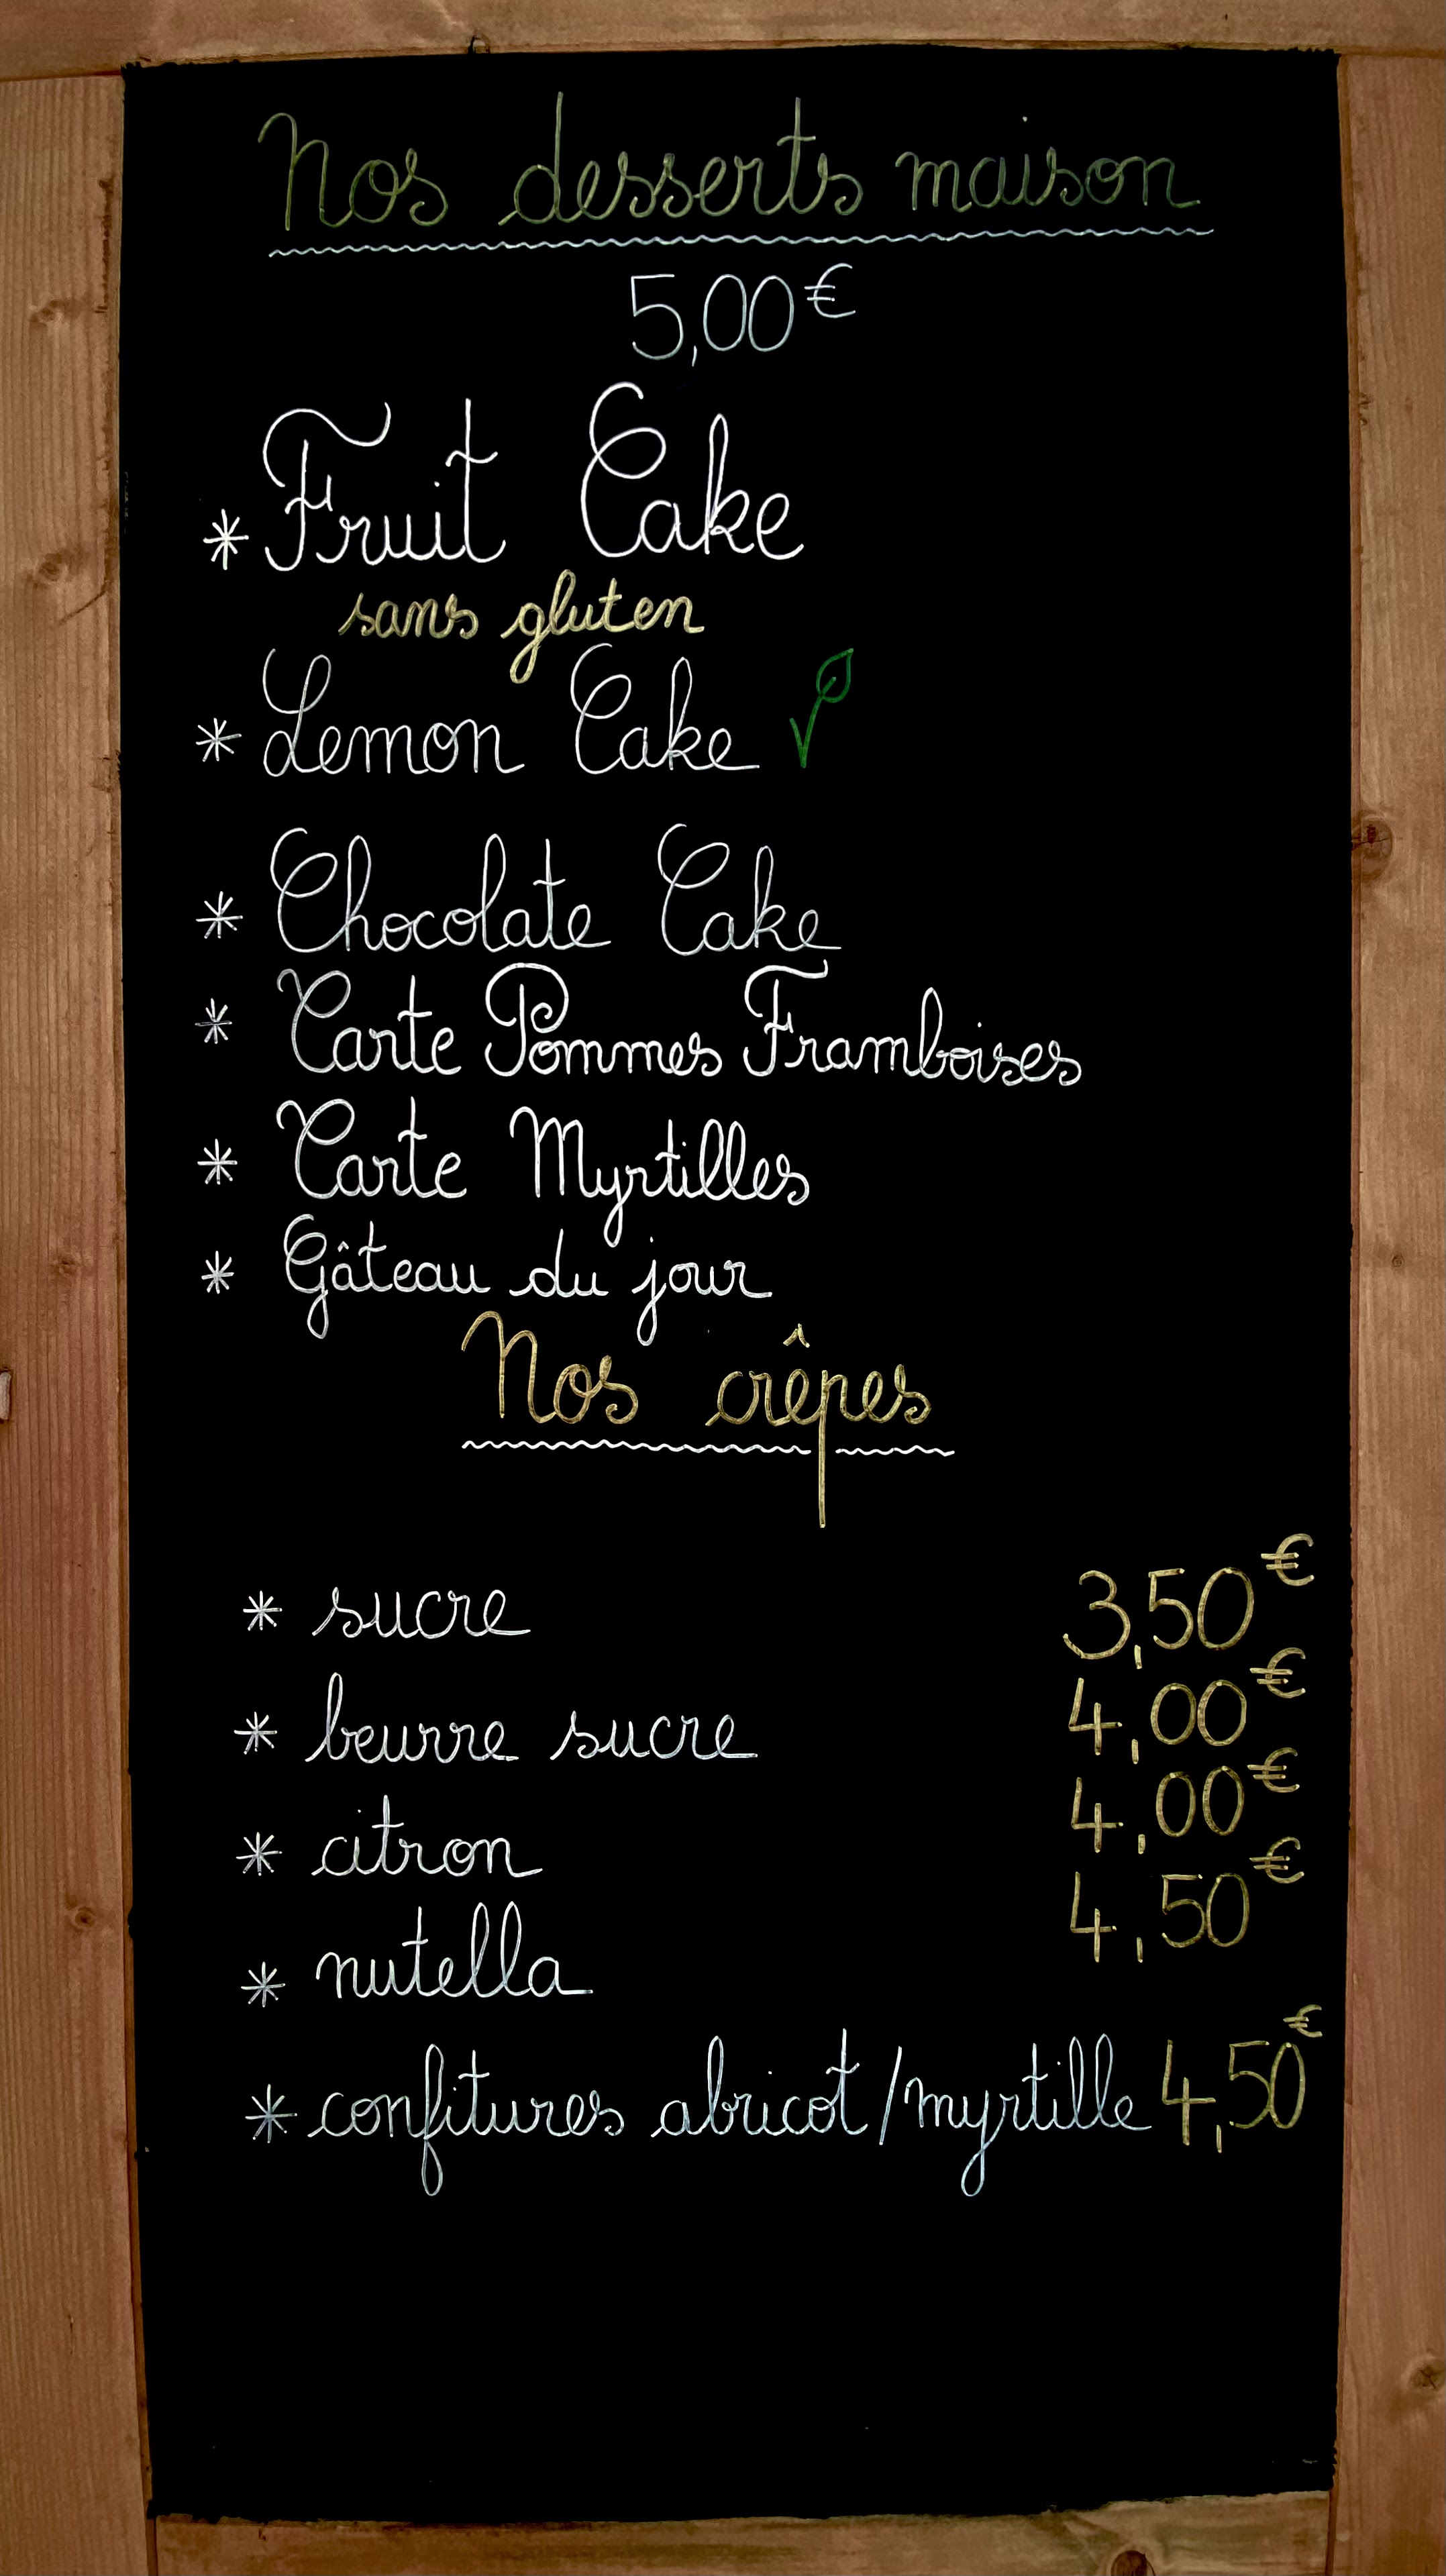 Nos desserts maison
5,00€
* Fruit Cake
sans gluten
* Lemon Cake
* Chocolate Cake
* Tarte Pommes Framboises
* Tarte Myrtilles
* Gâteau du jour
Nos crêpes
* sucre 3,50€
* beurre sucre 4,00€
* citron 4,00€
* nutella 4,50€
* confitures abricot/myrtille 4,50€